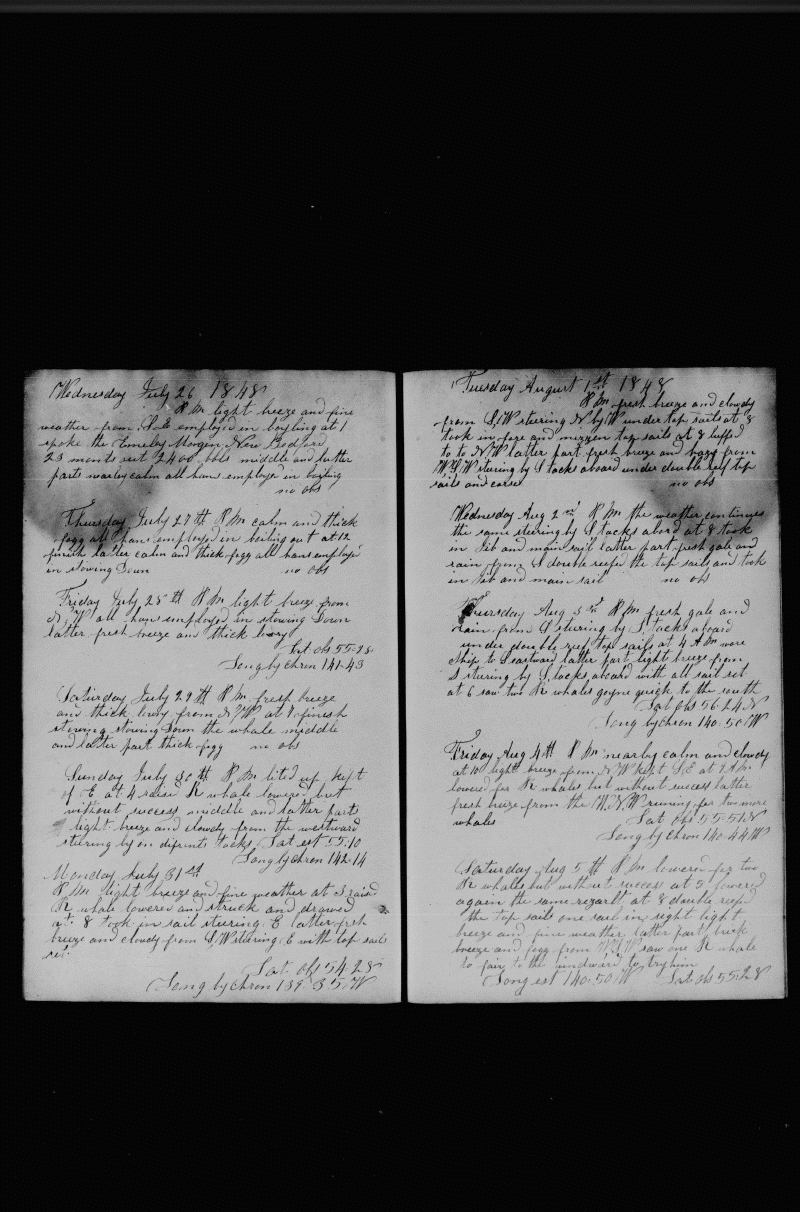 Wednesday July 26 1848
P M light breeze and fine
weather from employed in boyling at 1
spoke the Emeley Morgin New Bedford
23 months out 2400 bbls middle and latter
parts nearley calm all hans employed in boiling
no obs
Thursday July 27th P M calm and thick
fogg all hans employed in boiling out at 12
finish latter calm and thick fogg all hans employed
in stowing Down no obs
Friday July 28th P M light breeze from
N, W all hans employed in stowing Down
latter fresh breeze and thick
Lat obs 55-28
Long by chron 141-43
Saturday July 29th P M fresh breeze
and thick from at finish
stowing Down the whale middle
and latter part thick fogg no obs
Sunday July 30th P M lited up kept
of E at 4 raised R whale lowered but
without success middle and latter parts
light breeze and clowdy from the westward
steering by on difrints tacks Lat est 55-10
Long by chron 142-14
Monday July 31st
P M light breeze and fine weather at 3 raisd
R whale lowered and struck and drawed
at 8 took in sail steering E latter frsh
breeze and clowdy from S, W stering E with top sails
set
Lat obs 54-28
Long by chron 139-35, W
Tuesday August 1st 1848
P M fresh breeze and clowdy
from S, W steering N by W under top sails at 8
took in fore and mizzen top sails at 8 luffed
to to N, W latter part fresh breeze and from
W, S, W stering by S tacks aboard under double reef top
sails and no obs
Wednesday Aug 2nd P M the weather continues
the same steering by S, tacks abord at 8 took
in Jib and main sail latter part fresh gale and
rain from S double reefed the top sails and took
in Jib and main sail no obs
Thursday Aug 3rd P M fresh gale and
rain from S stering by S, tacks aboard
under double reef top sails at 4 A M wore
ship to S eastward latter part light breeze from
S stering by S, tacks aboard with all sail set
at 6 saw two R whales goyne quick to the south
Lat obs 56-24 N
Long by chron 140-50, W
Friday Aug 4th P M nearby calm and clowdy
at 10 light breeze from N, W kept S, E at 7 A M
lowered for R whales but without sucess latter
fresh breeze from the W, N, W runing for two more
whales Lat obs 55-51 N
Long by chron 140-44 W
Saturday Aug 5th P M lowered for two
R whales but without success at 5 lowered
again the same regarlt at 8 double reefed
the top sails one sail in sight light
breeze and fine weather latter part brisk
breeze and fogg from saw one R whale
to fair to the windward to try him
Long est 140-50, W Lat obs 55-28